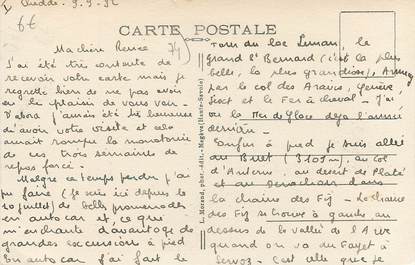 Quidde. 9.9.32
6€
CARTE POSTALE
Ma chère Renée
74)
J'ai été très contente de
recevoir votre carte mais je
regrette bien de ne pas avoir
eu le plaisir de vous voir -
D'abord j'aurais été heureuse
d'avoir votre visite et cela
aurait rompu la monotonie
de ces trois semaines de
repos forcé -
Malgré ce temps perdu j'ai
pu faire (je suis ici depuis le
10 juillet) de belles promenades
en autocar et, ce qui
m'enchante davantage de
grandes excursions à pied
En autocar j'ai fait le
L. Morand, phot.-édit. - Megève (Haute-Savoie)
Tour du lac Léman, le
Grand St Bernard (c'est la plus
belle, la plus grandiose), Annecy
par le col des Aravis, Genève,
Sixt et le Fer à cheval - J'ai
vu la Mer de Glace déjà l'année
dernière -
Enfin à pied je suis allée
au Buet (3100 m), au col
d'Anterne, au désert de Platé
et au dans
la chaîne des Fiz - La chaîne
des Fiz se trouve à gauche au
dessus de la vallée de l'Arve
quand on va du Fayet à
Servoz - C'est elle que je